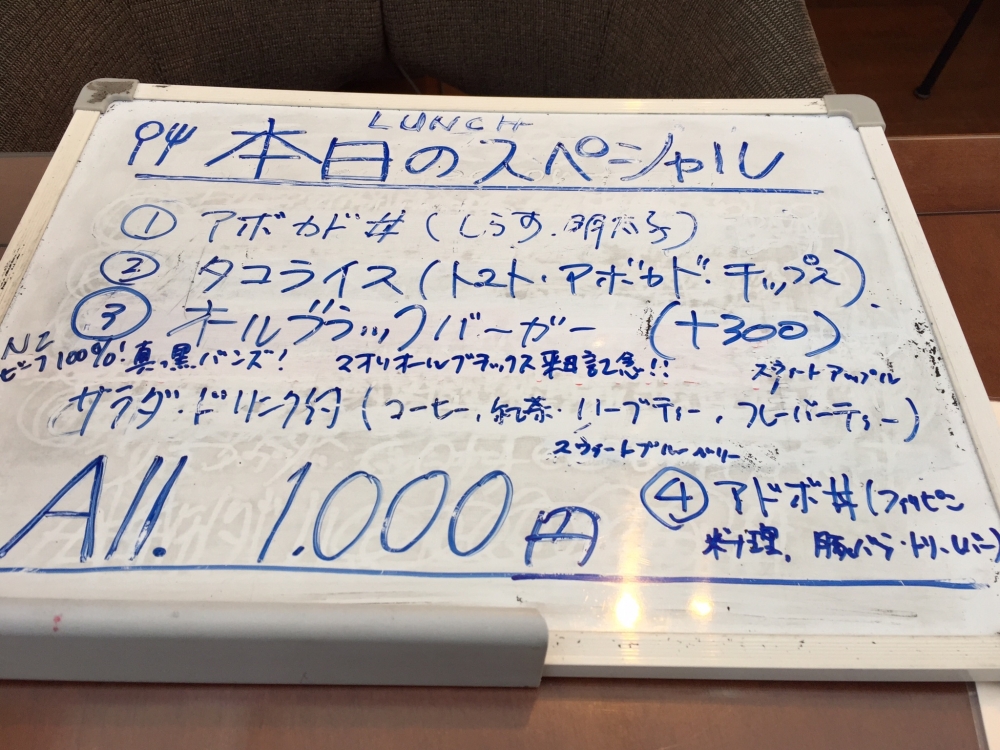 LUNCH
本日のスペシャル
① アボカド丼(しらす、明太子)
② タコライス(トマト・アボカド・チップス).
③ オールブラックバーガー (+300)
NZ
ビーフ100%!真っ黒バンズ! マオリオールブラックス来日記念!!
スウィートアップル
サラダ・ドリンク付(コーヒー、紅茶・ハーブティー、フレーバーティー)
スウィートブルーベリー
All. 1.000円
④ アドボ丼(フィリピン
料理, 豚バラ・トリ、レバー)